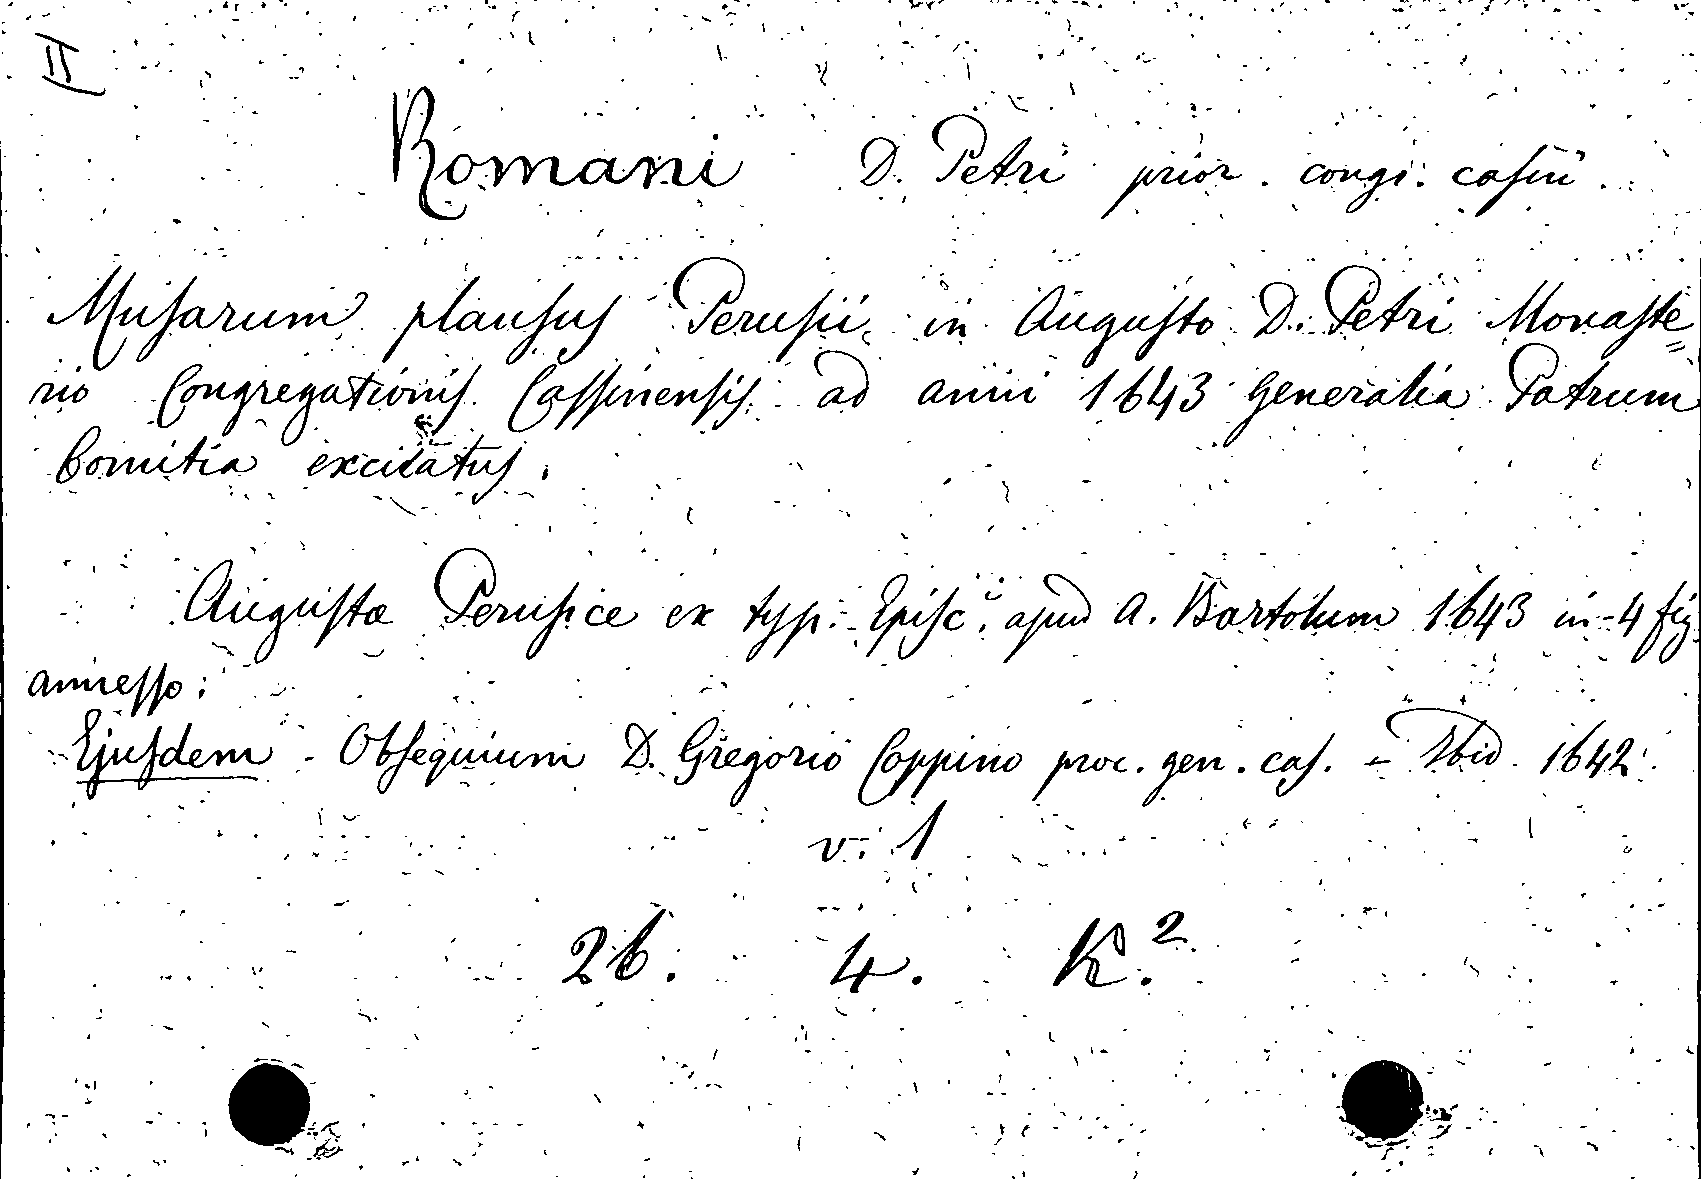 II
Romani D. Petri prior. congr. casin.
Musarum plausus Perusii in Augusto D. Petri Monaste=
rio Congregationis Cassinensis ad anni 1643 generalia Patrum
Comitia excitatus.
Augustæ Perusiæ ex typ. Episc. apud A. Bartolum 1643 in-4 fig.
annesso:
Ejusdem - Obsequium D. Gregorio Coppino proc. gen. cas. - Ibid. 1642.
v. 1
26. 4. K.²